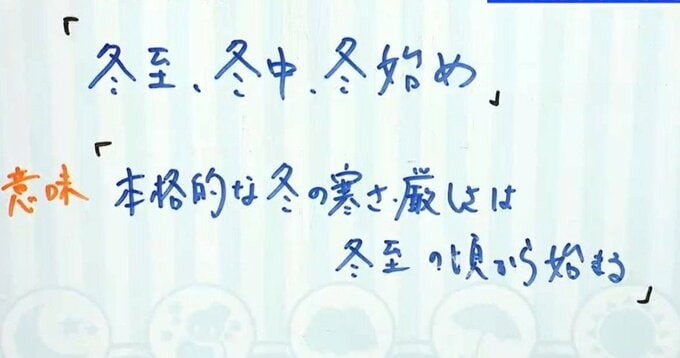 「冬至、冬中、冬始め」
意味「本格的な冬の寒さ・厳しさは
冬至の頃から始まる」